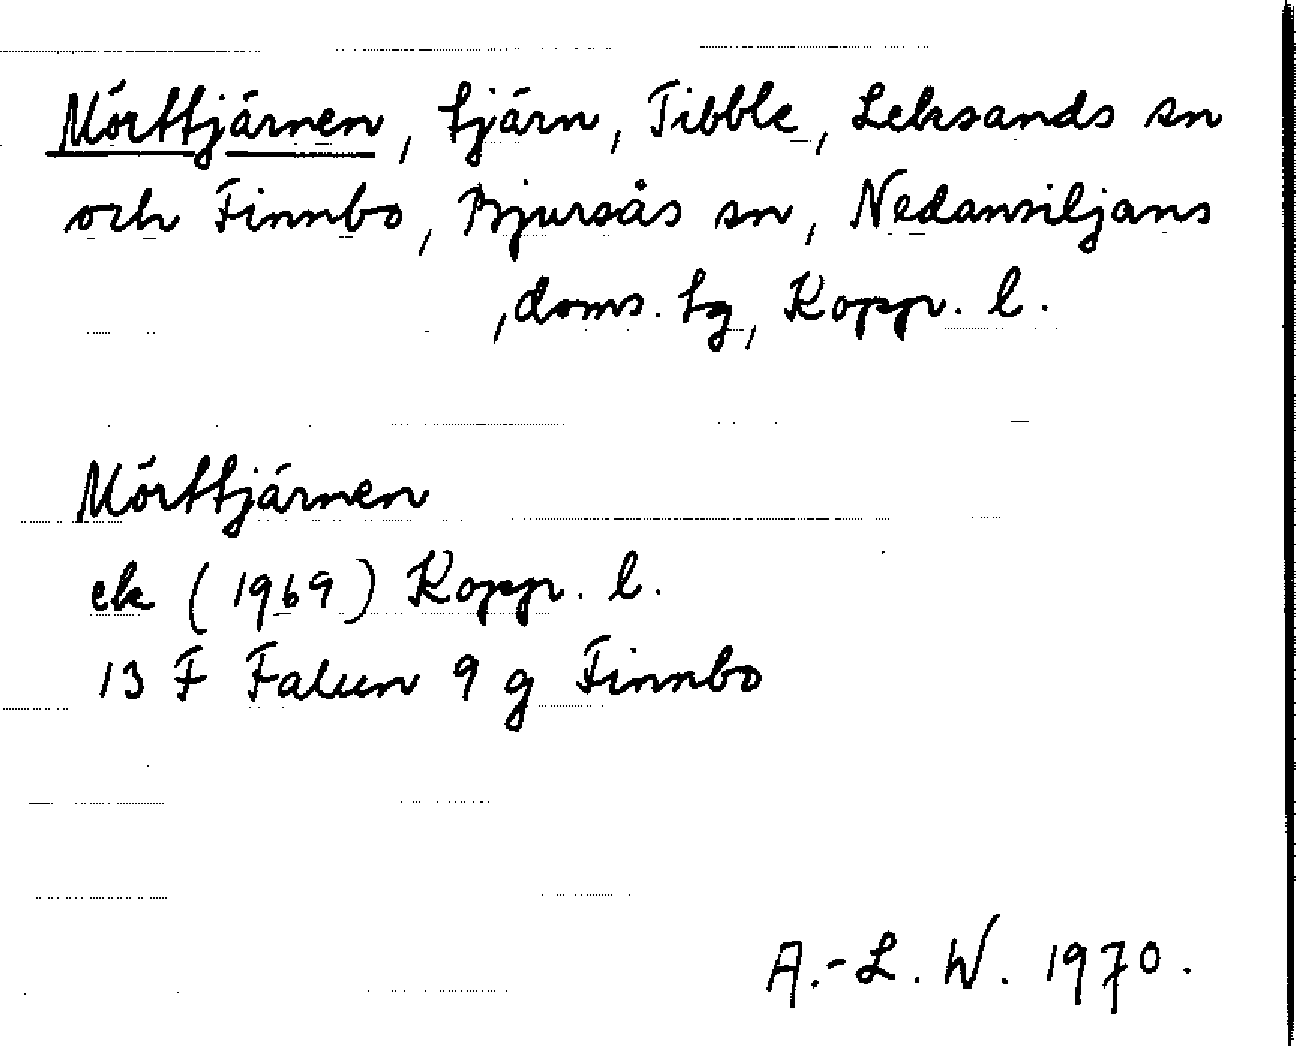 Mörttjärnen, tjärn, Tibble, Leksands sn
och Finnbo, Bjursås sn, Nedansiljans
,doms. tg, Koppr. l.
Mörttjärnen
ek (1969) Koppr. l.
13 F Falun 9 g Finnbo
A.-L. W. 1970.